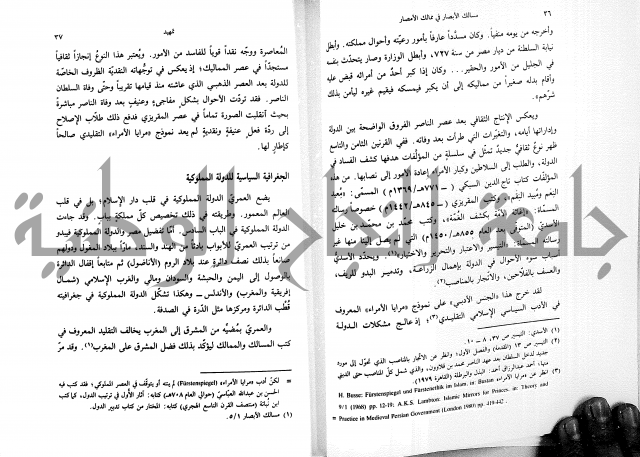 ٣٦
مسالك الأبصار في ممالك الأمصار
وأخرجه من يومه منفياً. وكان مسدّداً عارفاً بأمور رعيّته وأحوال مملكته. وأبطل
نيابة السلطنة من ديار مصر من سنة ٧٢٧، وأبطل الوزارة وصار يتحدّث بنفسه
في الجليل من الأمور والحقير... وكان إذا كبر أحدٌ من أمرائه قبض عليه
وأقام بدله صغيراً من مماليكه إلى أن يكبر فيمسكه فيقيم غيره ليأمن بذلك
شرّهم».
ويعكس الإنتاج الثقافي بعد عصر الناصر الفروق الواضحة بين الدولة
وإداراتها أيامه، والتغيّرات التي طرأت بعد وفاته. ففي القرنين الثامن والتاسع
ظهر نوعٌ ثقافيٌّ جديدٌ تمثّل في سلسلةٍ من المؤلّفات هدفها كشف الفساد في
الدولة، والطلب إلى السلاطين وكبار الأمراء إعادة الأمور إلى نصابها. من هذا
المؤلّفات كتاب تاج الدين السبكي ( ــ ٧٧١هـ/١٣٦٩م) المسمّى: «مُعيد
النعم ومُبيد النِقَم»، وكتب المقريزي ( ــ ٨٤٥هـ/١٤٤٢م) خصوصاً رسالته
المسمّاة: «إغاثة الأمة بكشف الغُمّة»، وكتب محمد بن محمد بن خليل
الأسدي (المتوفّى بعد العام ٨٥٥هـ/١٤٥٠م) التي لم يصل إلينا منها غير
المسمّاة: «التيسير والاعتبار والتحرير والاختبار»(١). ويحدّد الأسديّ
أسباب سوء الأحوال في الدولة بإهمال الزراعة، وتدمير البدو للريف،
والعسف بالفلاحين، والاتّجار بالمناصب(٢).
لقد خرج هذا «الجنس الأدبي» على نموذج «مرايا الأمراء» المعروف
في الأدب السياسي الإسلامي التقليدي(٣)؛ إذ عالج مشكلات الدولة
(١) الأسدي: التيسير ص ٣٧، ٨ ــ ١٠.
(٢) التيسير ص ١٣ (المقدمة) والفصل الأول؛
H. Busse: Fürstenspiegel und Fürstenethik in Islam. in: Bustan
9/1 (1968) pp. 12-19; A.K.S. Lambton: Islamic Mirrors for Princes. in: Theory and
Practice in Medieval Persian Government (London 1980) pp. 419-442.
تمهيد
٣٧
المُعاصرة ووجّه نقداً قوياً للفاسد من الأمور. ويُعتبر هذا النوع إنجازاً ثقافياً
مستجدّاً في عصر المماليك؛ إذ يعكس في توجّهاته النقديّة الظروف الخاصّة
للدولة بعد العصر الذهبي الذي عاشته منذ قيامها تقريباً وحتى وفاة السلطان
الناصر. فقد تردّت الأحوال بشكلٍ مفاجئ وعنيفٍ بعد وفاة الناصر مباشرةً
بحيث انقلبت الصورة تماماً في عصر المقريزي فدفع ذلك طلّاب الإصلاح
إلى ردّة فعلٍ عنيفةٍ ونقديةٍ لم يعد نموذج «مرايا الأمراء» التقليدي صالحاً
كإطارٍ لها.
الجغرافية السياسية للدولة المملوكية
يضع العمريّ الدولة المملوكية في قلب دار الإسلام؛ بل في قلب
العالم المعمور. وطريقته في ذلك تخصيص كلّ مملكةٍ بباب. وقد جاءت
الدولة المملوكية في الباب السادس. أمّا تفضيل مصر والدولة المملوكية فيبدو
من ترتيب العمريّ للأبواب بادئاً من الهند والسند، ماراً ببلاد المغول ودولهم
صانعاً بذلك نصف دائرةٍ عند بلاد الروم (الأناضول) ثم متابعاً إقفال الدائرة
بالوصول إلى اليمن والحبشة والسودان ومالي والغرب الإسلامي (شمال
إفريقية والمغرب) والأندلس ــ وهكذا تشكّل الدولة المملوكية في جغرافيته
قُطب الدائرة ومركزها مثل الدرّة في الصدفة.
والعمريّ بمُضيّه من المشرق إلى المغرب يخالف التقليد المعروف في
كتب المسالك والممالك ليؤكّد بذلك فضل المشرق على المغرب(١). وقد مرّ
= لكنّ أدب «مرايا الأمراء» (Fürstenspiegel) لم يتوقّف في العصر المملوكي؛ فقد كتب فيه
الحسن بن عبدالله العباسي (حوالي العام ٧٠٨هـ) كتابه: آثار الأُول في ترتيب الدول، كما كتب
ابن نُباتة (منتصف القرن التاسع الهجري) كتابه: المختار من كتاب تدبير الدول.
(١) مسالك الأبصار ٥/١.
جامعة الدول